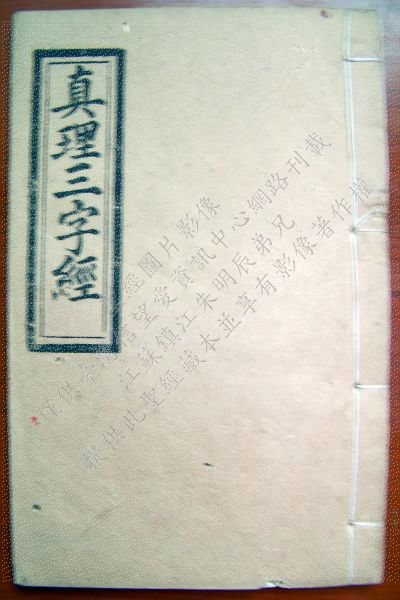 真理三字經
僅供臺灣信望愛資訊中心網路刊載
聖經圖片影像
江蘇鎮江朱明辰弟兄
提供此聖經藏本並享有影像著作權